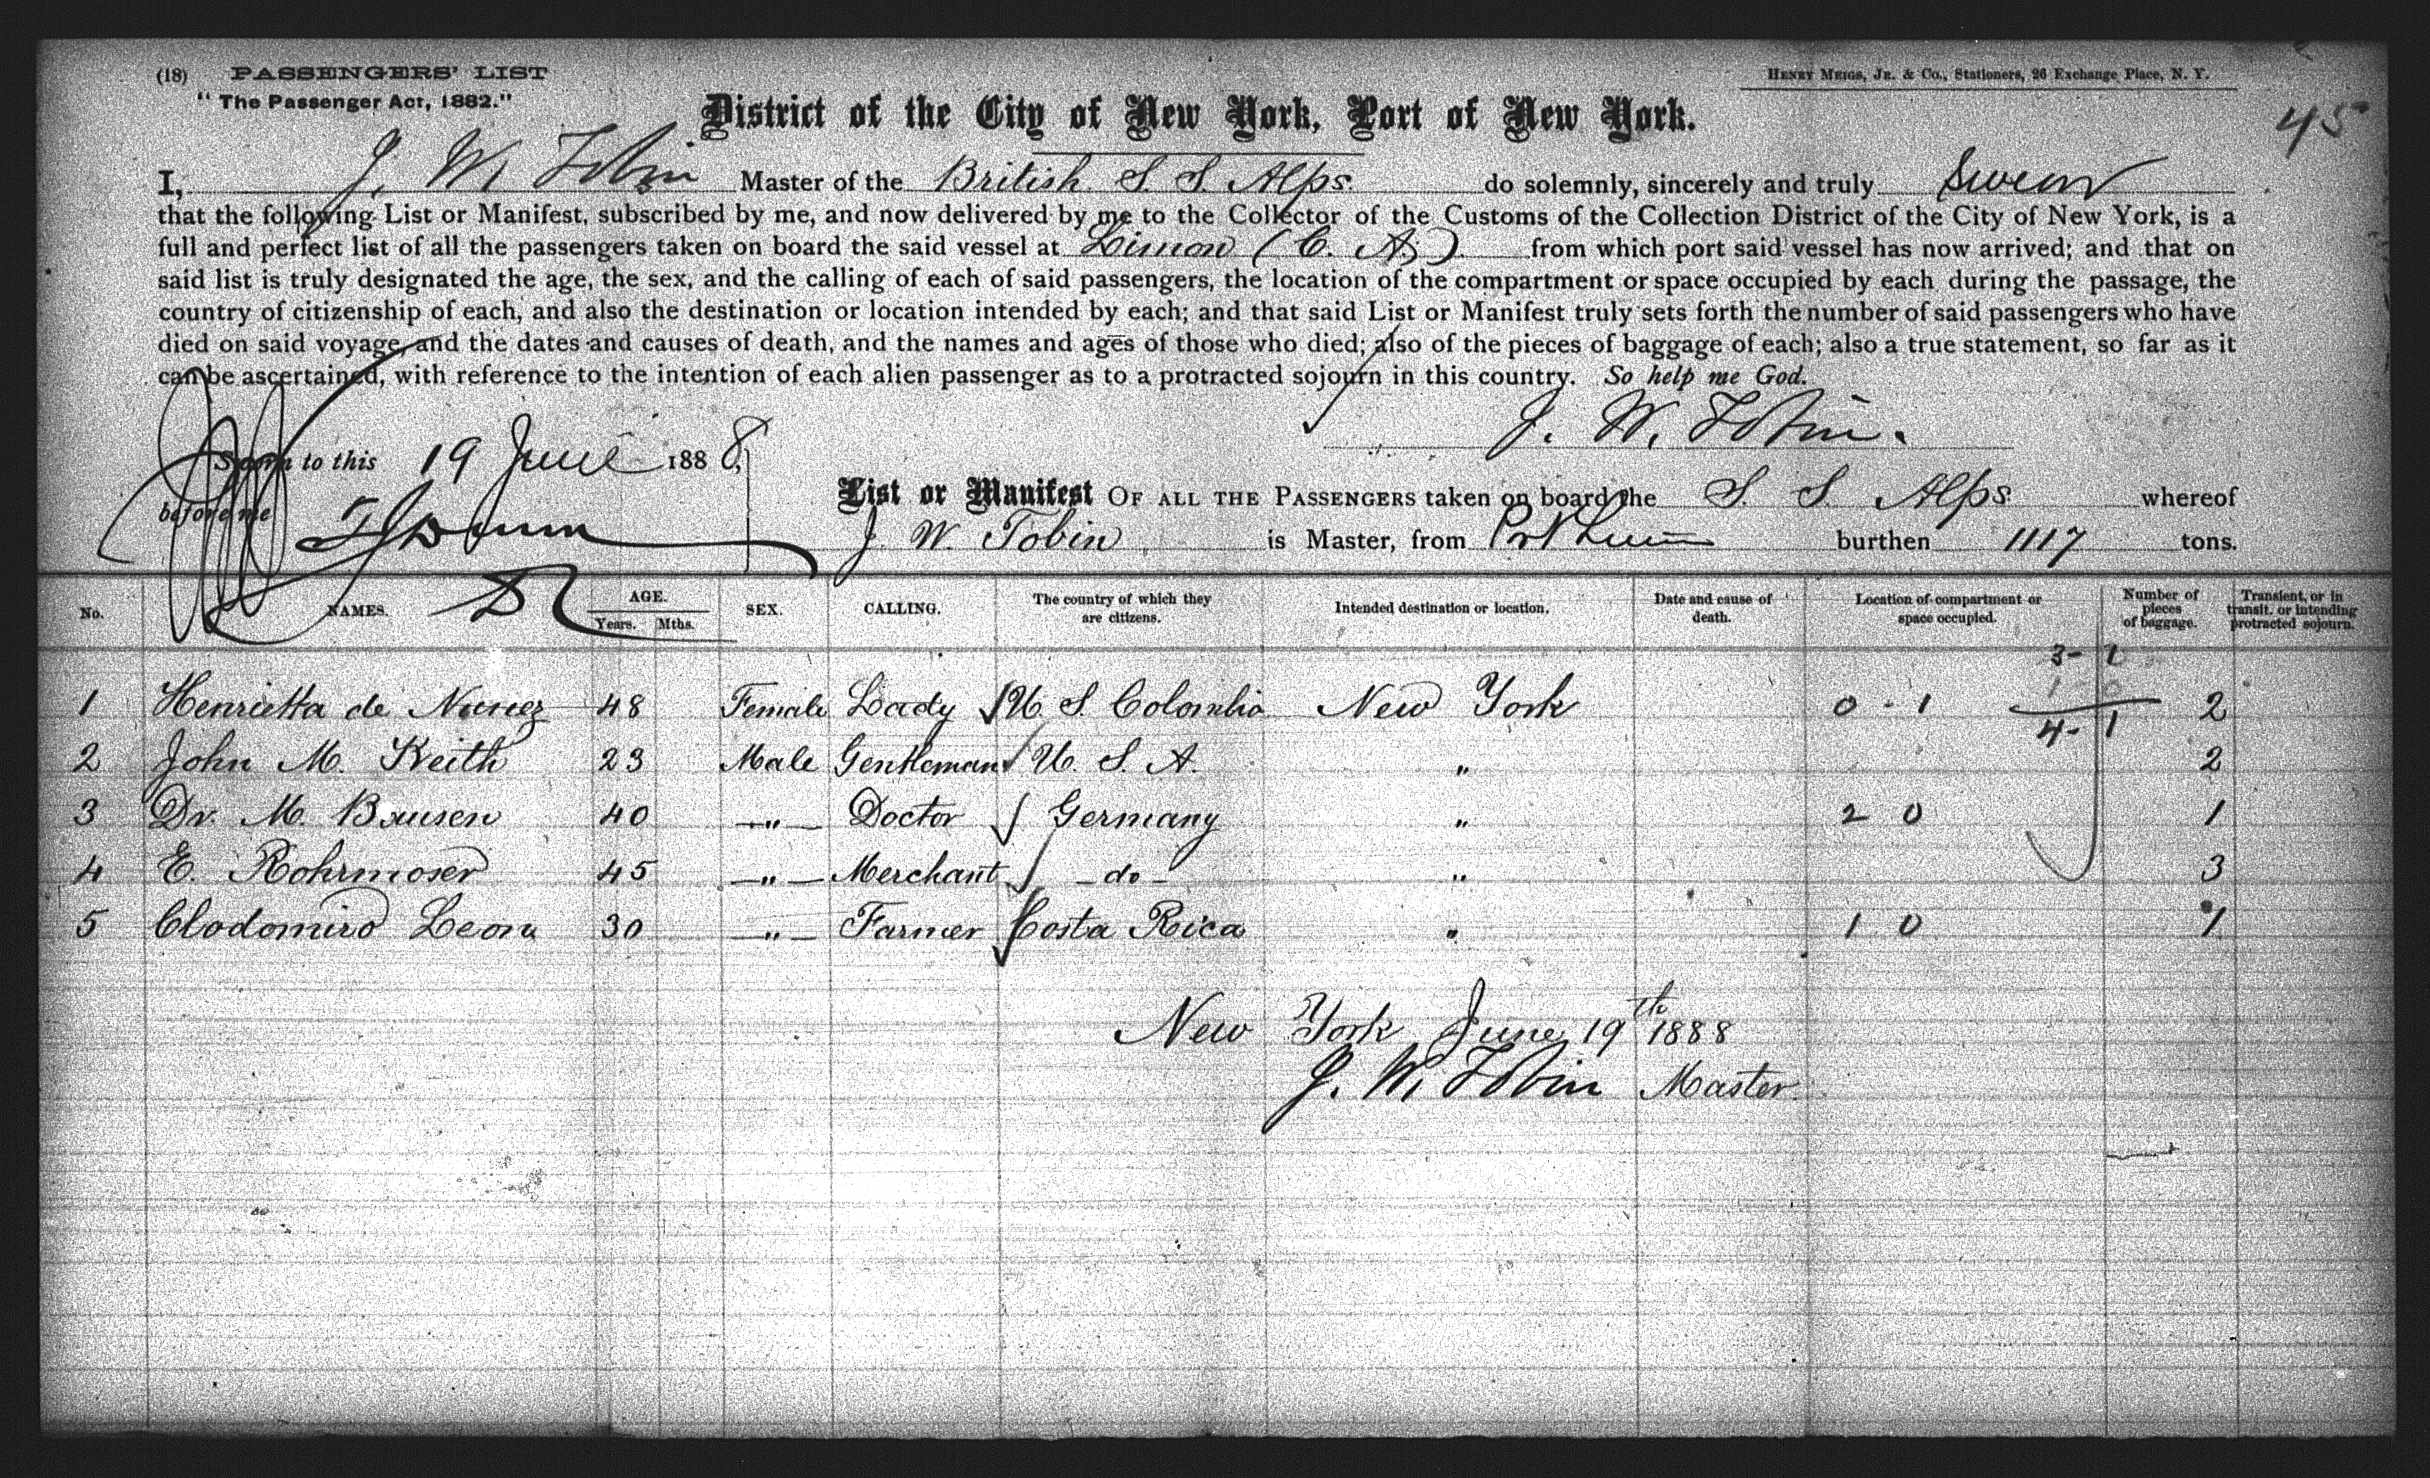 (18) PASSENGERS' LIST
"The Passenger Act, 1882."
HENRY MEIGS, JR. & CO., Stationers, 26 Exchange Place, N. Y.
45
District of the City of New York, Port of New York.
I, J. W. Tobin Master of the British S. S. Alps. do solemnly, sincerely and truly Swear
that the following List or Manifest, subscribed by me, and now delivered by me to the Collector of the Customs of the Collection District of the City of New York, is a
full and perfect list of all the passengers taken on board the said vessel at Limon (C. A.) from which port said vessel has now arrived; and that on
said list is truly designated the age, the sex, and the calling of each of said passengers, the location of the compartment or space occupied by each during the passage, the
country of citizenship of each, and also the destination or location intended by each; and that said List or Manifest truly sets forth the number of said passengers who have
died on said voyage, and the dates and causes of death, and the names and ages of those who died; also of the pieces of baggage of each; also a true statement, so far as it
can be ascertained, with reference to the intention of each alien passenger as to a protracted sojourn in this country. So help me God.
J. W. Tobin.
Sworn to this 19 June 1888,
before me
List or Manifest OF ALL THE PASSENGERS taken on board the S. S. Alps whereof
J. W. Tobin is Master, from Port Limon burthen 1117 tons.
No. NAMES. AGE. Years. Mths. SEX. CALLING. The country of which they are citizens. Intended destination or location. Date and cause of death. Location of compartment or space occupied. Number of pieces of baggage. Transient, or in transit, or intending protracted sojourn.
3- 1
1 0
4- 1
1 Henrietta de Nunez 48 Female Lady U. S. Colombia New York 0 - 1 2
2 John M. Keith 23 Male Gentleman U. S. A. " 2
3 Dr. M. Bansen 40 —"— Doctor Germany " 2 0 1
4 E. Rohrmoser 45 —"— Merchant - do - " 3
5 Clodomiro Leon 30 —"— Farmer Costa Rica " 1 0 1
New York June 19th 1888
J. W. Tobin Master.